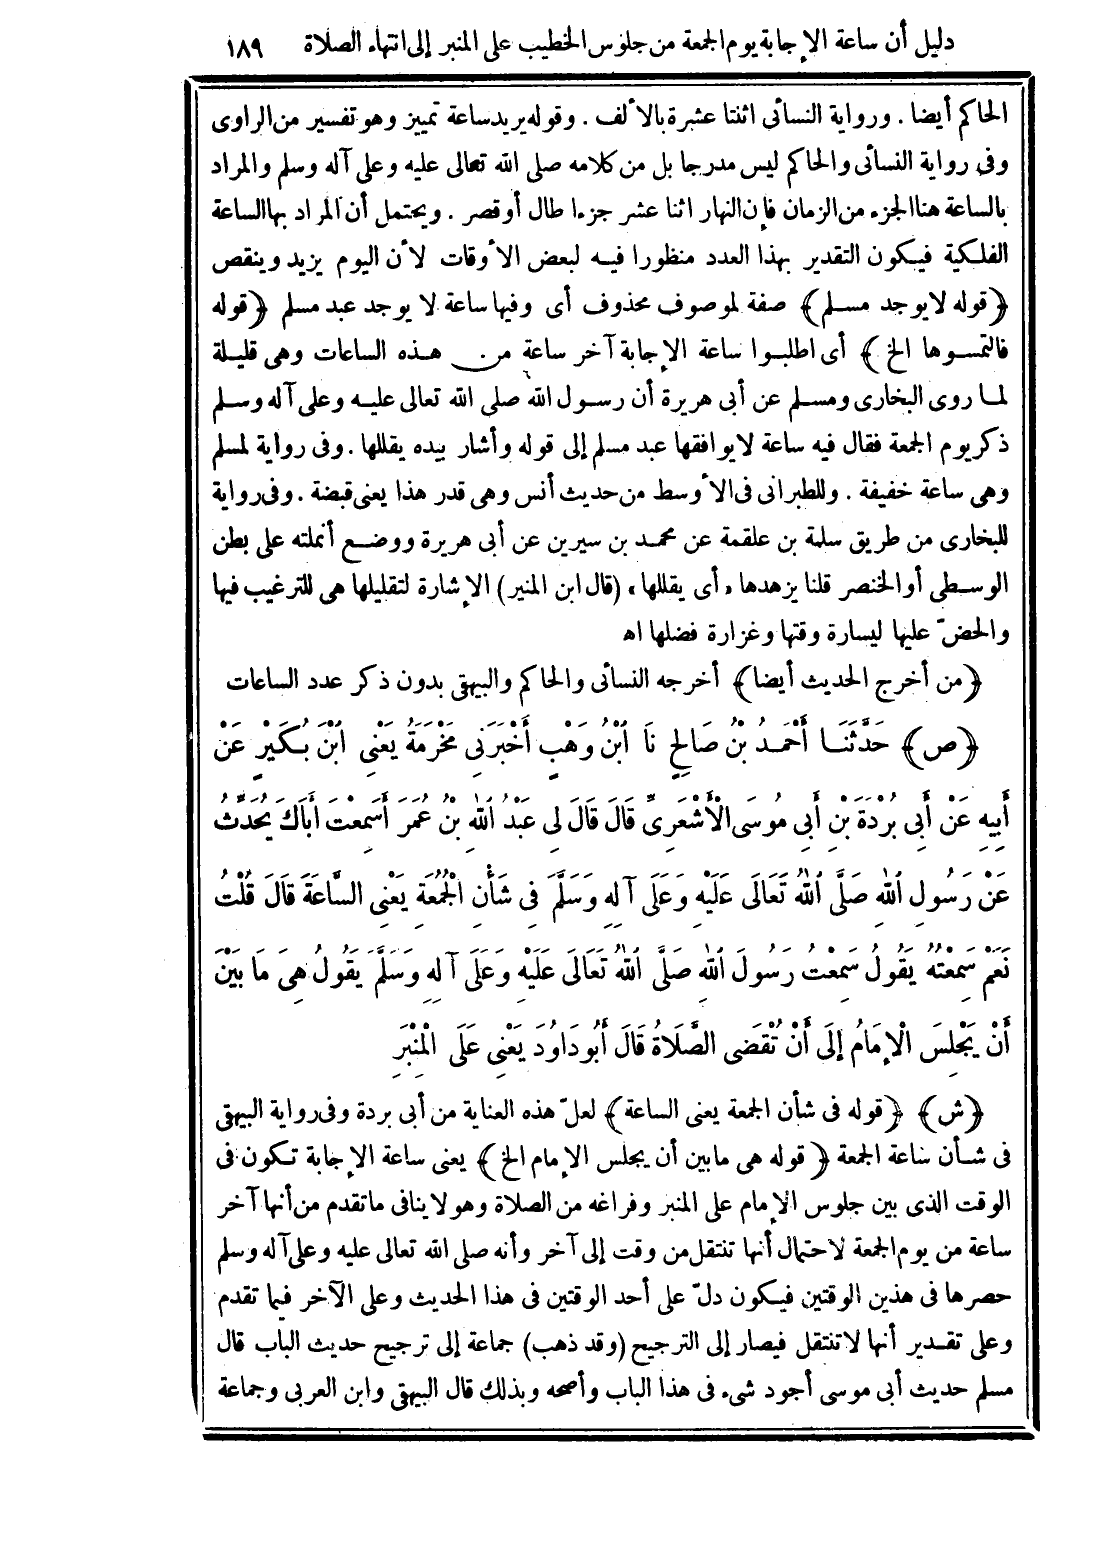 دليل أن ساعة الإجابة يوم الجمعة من جلوس الخطيب على المنبر إلى انتهاء الصلاة ١٨٩
الحاكم أيضا . ورواية النسائى اثنتا عشرة بالألف . وقوله يريد ساعة تمييز وهو تفسير من الراوى
وفى رواية النسائى والحاكم ليس مدرجا بل من كلامه صلى الله تعالى عليه وعلى آله وسلم والمراد
بالساعة هنا الجزء من الزمان فإن النهار اثنا عشر جزءا طال أو قصر . ويحتمل أن المراد بها الساعة
الفلكية فيكون التقدير بهذا العدد منظورا فيه لبعض الأوقات لأن اليوم يزيد وينقص
﴿قوله لا يوجد مسلم﴾ صفة لموصوف محذوف أى وفيها ساعة لا يوجد عبد مسلم ﴿قوله
فالتمسوها الخ﴾ أى اطلبوا ساعة الإجابة آخر ساعة من هذه الساعات وهى قليلة
لما روى البخارى ومسلم عن أبى هريرة أن رسول الله صلى الله تعالى عليه وعلى آله وسلم
ذكر يوم الجمعة فقال فيه ساعة لا يوافقها عبد مسلم إلى قوله وأشار بيده يقللها . وفى رواية لمسلم
وهى ساعة خفيفة . وللطبرانى فى الأوسط من حديث أنس وهى قدر هذا يعنى قبضة . وفى رواية
للبخارى من طريق سلمة بن علقمة عن محمد بن سيرين عن أبى هريرة ووضع أنملته على بطن
الوسطى أو الخنصر قلنا يزهدها «أى يقللها» (قال ابن المنير) الإشارة لتقليلها هى للترغيب فيها
والحضّ عليها ليسارة وقتها وغزارة فضلها اه
﴿من أخرج الحديث أيضا﴾ أخرجه النسائى والحاكم والبيهقى بدون ذكر عدد الساعات
﴿ص﴾ حَدَّثَنَا أَحْمَدُ بْنُ صَالِحٍ نَا ابْنُ وَهْبٍ أَخْبَرَنِى مَخْرَمَةُ يَعْنِى ابْنَ بُكَيْرٍ عَنْ
أَبِيهِ عَنْ أَبِى بُرْدَةَ بْنِ أَبِى مُوسَى الْأَشْعَرِىِّ قَالَ قَالَ لِى عَبْدُ اللهِ بْنُ عُمَرَ أَسَمِعْتَ أَبَاكَ يُحَدِّثُ
عَنْ رَسُولِ اللهِ صَلَّى اللهُ تَعَالَى عَلَيْهِ وَعَلَى آلِهِ وَسَلَّمَ فِى شَأْنِ الْجُمُعَةِ يَعْنِى السَّاعَةَ قَالَ قُلْتُ
نَعَمْ سَمِعْتُهُ يَقُولُ سَمِعْتُ رَسُولَ اللهِ صَلَّى اللهُ تَعَالَى عَلَيْهِ وَعَلَى آلِهِ وَسَلَّمَ يَقُولُ هِىَ مَا بَيْنَ
أَنْ يَجْلِسَ الْإِمَامُ إِلَى أَنْ تُقْضَى الصَّلَاةُ قَالَ أَبُو دَاوُدَ يَعْنِى عَلَى الْمِنْبَرِ
﴿ش﴾ ﴿قوله فى شأن الجمعة يعنى الساعة﴾ لعلّ هذه العناية من أبى بردة وفى رواية البيهقى
فى شأن ساعة الجمعة ﴿قوله هى مابين أن يجلس الإمام الخ﴾ يعنى ساعة الإجابة تكون فى
الوقت الذى بين جلوس الإمام على المنبر وفراغه من الصلاة وهو لا ينافى ماتقدم من أنها آخر
ساعة من يوم الجمعة لاحتمال أنها تنتقل من وقت إلى آخر وأنه صلى الله تعالى عليه وعلى آله وسلم
حصرها فى هذين الوقتين فيكون دلّ على أحد الوقتين فى هذا الحديث وعلى الآخر فيما تقدم
وعلى تقدير أنها لا تنتقل فيصار إلى الترجيح (وقد ذهب) جماعة إلى ترجيح حديث الباب قال
مسلم حديث أبى موسى أجود شىء فى هذا الباب وأصحه وبذلك قال البيهقى وابن العربى وجماعة